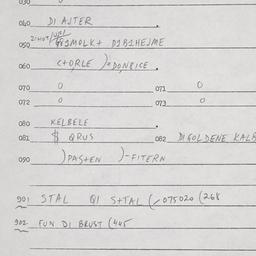 030
040 DI AJTER .
050 GIMOLKT DIBIHEJME
060 C+ORLE )=DONBICE .
070 0 071 0
072 0 073 0
080 KELBELE
081 $ QRUS 082 DI GOLDENE KALB
090 )PAS+EN )-FITERN
901 STAL QI S+TAL (-075020 (268
902 FUN DI BRUST (405